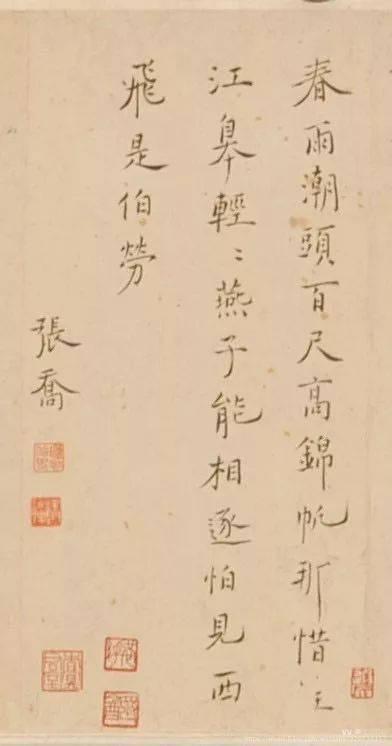 春雨潮頭百尺高錦帆那惜挂
江皋輕〻燕子能相逐怕見西
飛是伯勞
張喬